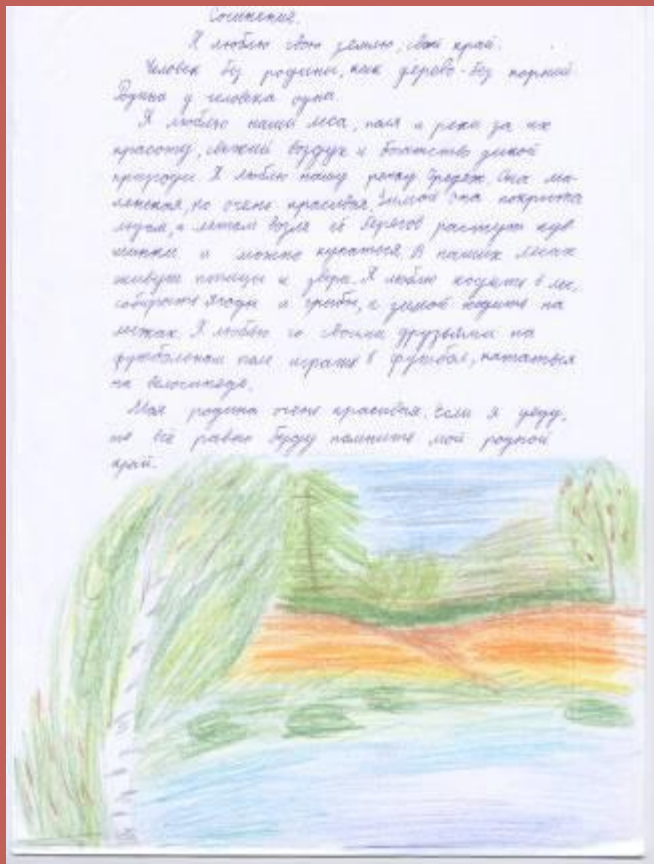 Сочинение.
Я люблю свою землю, свой край.
Человек без родины, как дерево - без корней.
Родина у человека одна.
Я люблю наши леса, поля и реки за их
красоту, свежий воздух и богатство дикой
природы. Я люблю нашу речку Она ма-
ленькая, но очень красивая. Зимой она покрыта
льдом, а летом возле её берегов растут кув
шинки и можно купаться. В наших лесах
живут птицы и звери. Я люблю ходить в лес,
собирать ягоды и грибы, а зимой ходить на
лыжах. Я люблю со своими друзьями на
футбольном поле играть в футбол, кататься
на велосипеде.
Моя родина очень красивая. Если я уеду,
то всё равно буду помнить мой родной
край.